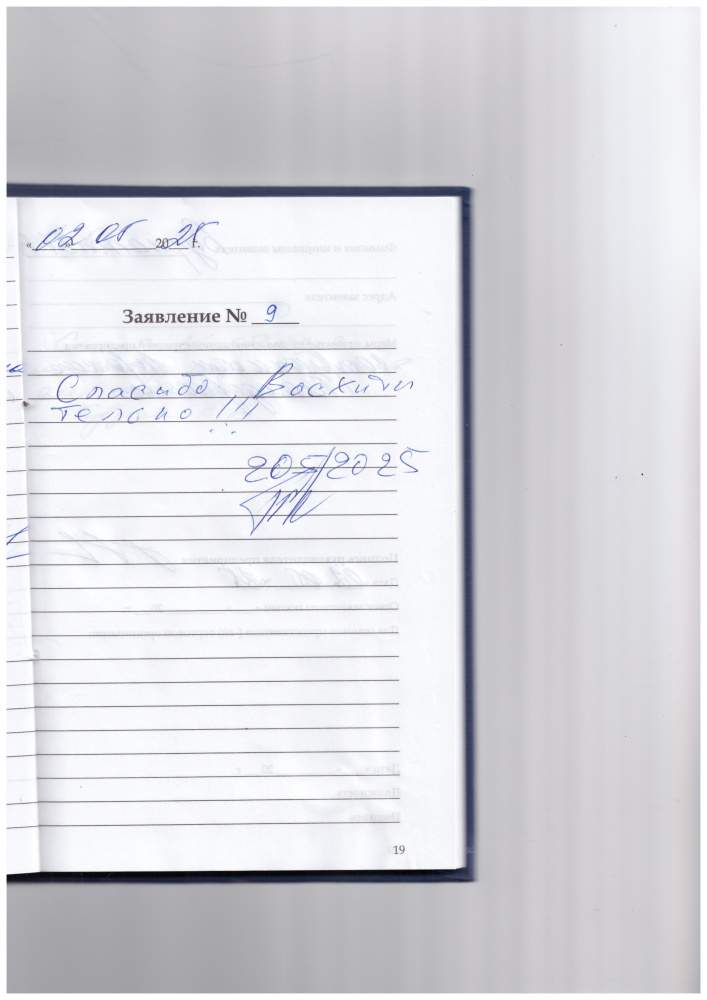 « 02 » 05 2025 г.
Заявление № 9
Спасибо, Восхити
тельно!!!
2052025
19